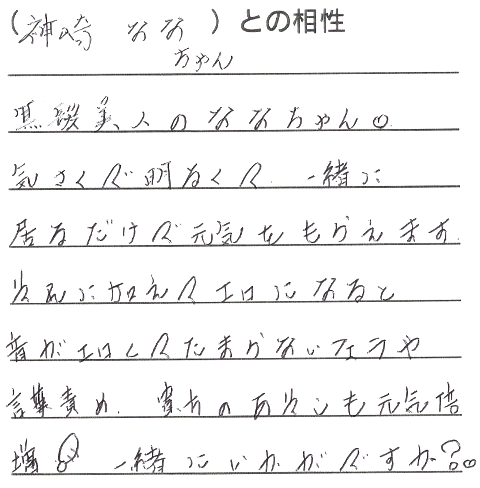 (神崎 なな)との相性
ちゃん
黒髪美人のななちゃん。
気さくで明るくて、一緒に
居るだけで元気をもらえます。
に加えてエロになると
音がエロくてたまらないフェラや
言葉責め、貴方のあそこも元気倍
増 一緒にいかがですか?。